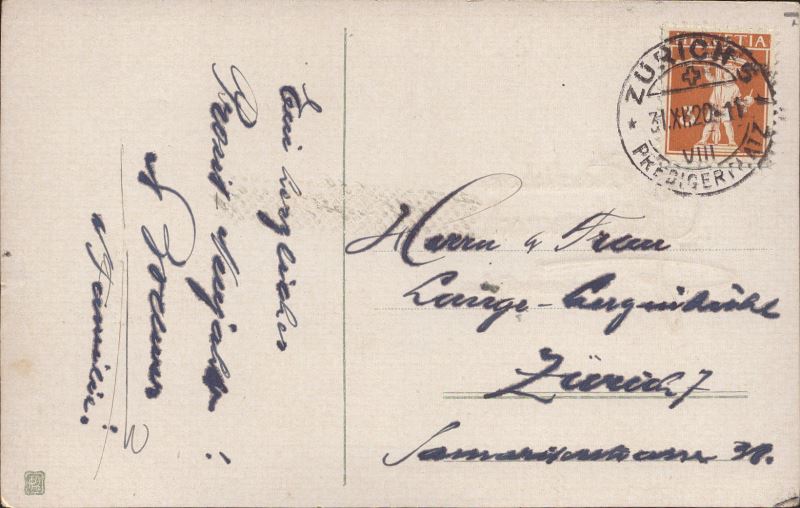 Ein herzliches
Prosit Neujahr!
Familie.
HELVETIA
ZÜRICH 5
31.XII.20.-11
VIII
PREDIGERPLATZ
Herrn & Frau
Lange-
Zürich 7
Samariterstrasse 30.